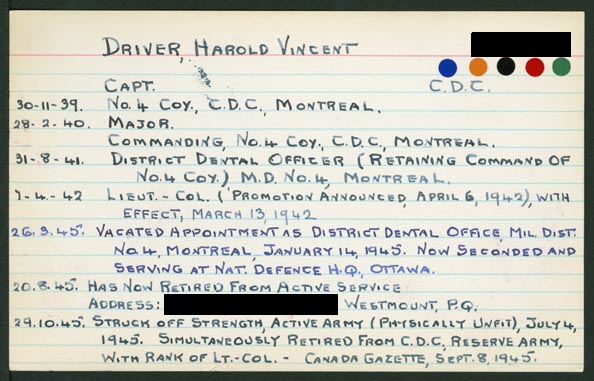 DRIVER, HAROLD VINCENT
CAPT. C.D.C.
30-11-39. NO. 4 COY., C.D.C., MONTREAL.
28-2-40. MAJOR.
COMMANDING, NO. 4 COY., C.D.C., MONTREAL.
31-8-41. DISTRICT DENTAL OFFICER (RETAINING COMMAND OF
NO. 4 COY.) M.D. NO. 4, MONTREAL.
7-4-42 LIEUT.-COL. (PROMOTION ANNOUNCED, APRIL 6, 1942), WITH
EFFECT, MARCH 13, 1942
26.3.45. VACATED APPOINTMENT AS DISTRICT DENTAL OFFICE, MIL. DIST.
NO. 4, MONTREAL, JANUARY 14, 1945. NOW SECONDED AND
SERVING AT NAT. DEFENCE H.Q., OTTAWA.
20.8.45. HAS NOW RETIRED FROM ACTIVE SERVICE
ADDRESS: WESTMOUNT, P.Q.
29.10.45. STRUCK OFF STRENGTH, ACTIVE ARMY (PHYSICALLY UNFIT), JULY 4,
1945. SIMULTANEOUSLY RETIRED FROM C.D.C., RESERVE ARMY,
WITH RANK OF LT.-COL. - CANADA GAZETTE, SEPT. 8, 1945.